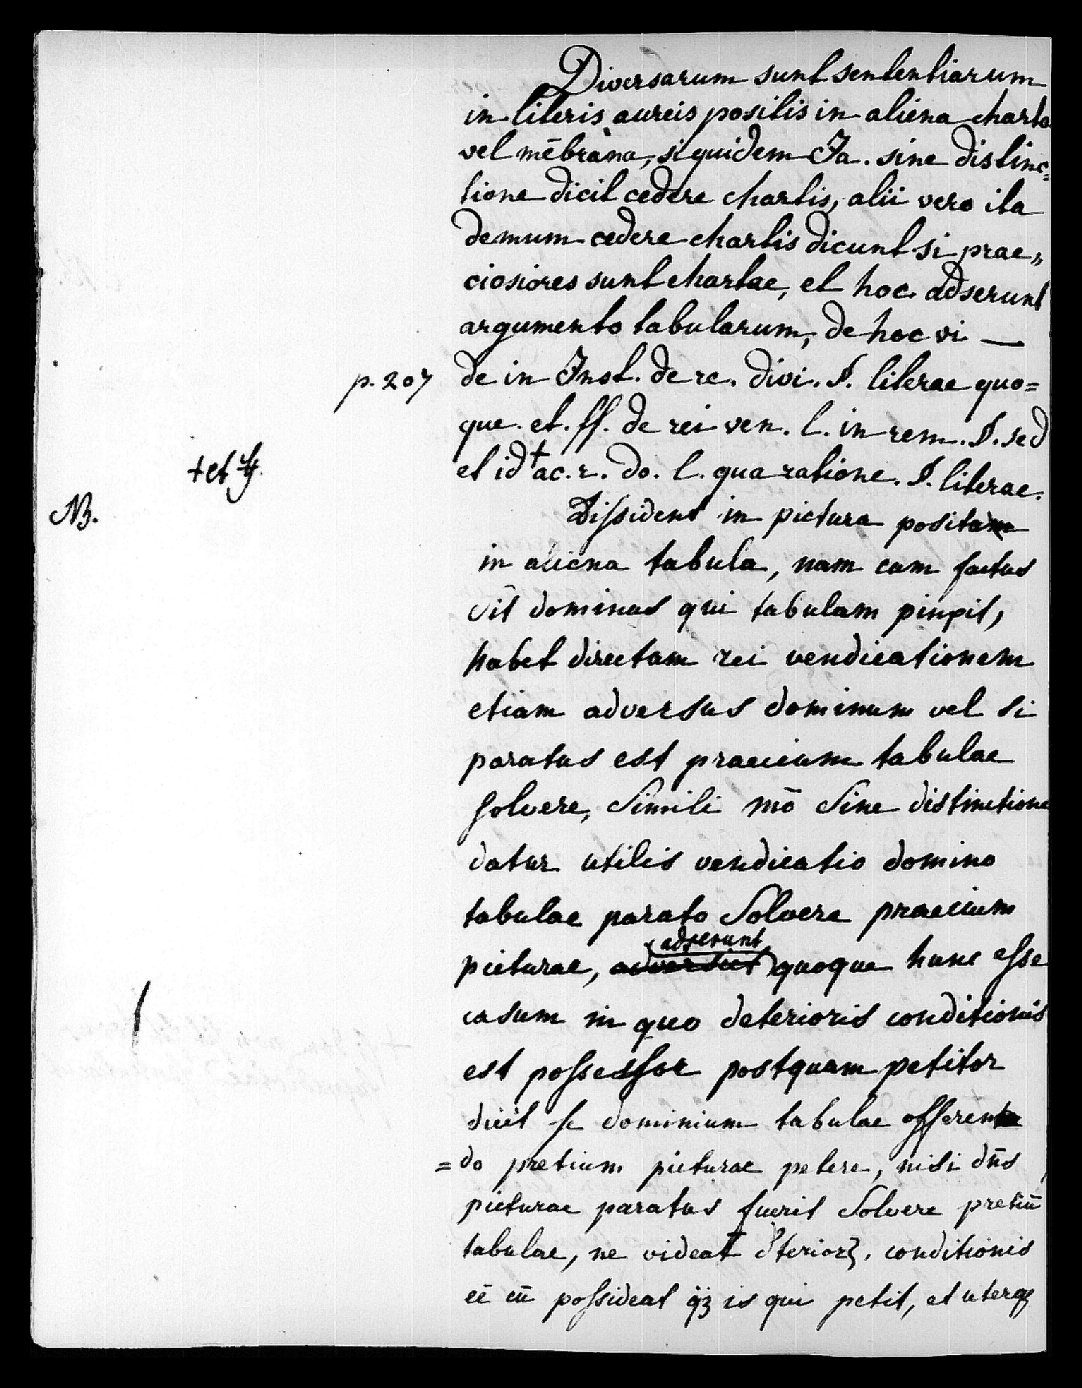 Diversarum sunt sententiarum
in literis aureis positis in aliena charta
vel mēbrana, siquidem Ja. sine distinc=
tione dicit cedere chartis, alii vero ita
demum cedere chartis dicunt si prae„
ciosiores sunt chartae, et hoc adserunt
argumento tabularum, de hoc vi —
p. 207 de in Inst. de re. divi. §. literae quo=
que et. ff. de rei ven. l. in rem. §. sed
et id + ac. r. do. l. qua ratione. §. literae.
+ et ff.
NB.
Dissident in pictura posita
in aliena tabula, nam cum factus
sit dominus qui tabulam pinxit,
habet directam rei vendicationem
etiam adversus dominum vel si
paratus est praecium tabulae
solvere, simili mō sine distinctione
datur utilis vendicatio domino
tabulae parato solvere praecium
picturae, adserunt quoque hunc esse
casum in quo deterioris conditionis
est possessor postquam petitor
dicit se dominium tabulae offeren
=do pretium picturae petere, nisi dn̄s
picturae paratus fuerit solvere pretiū
tabulae, ne videat deterior conditionis
eē cū possideat qz is qui petit, et uterqz